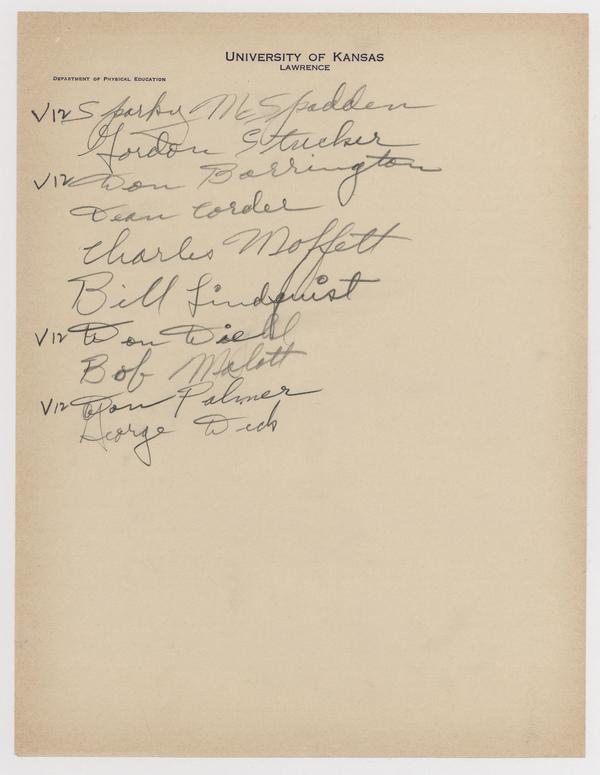 University of Kansas
Lawrence
Department of Physical Education
V12 Sparky McSpadden
Gordon Strucker
V12 Don Barrington
Dean Corder
Charles Moffett
Bill Lindquist
V12 Don Diehl
Bob Malott
V12 Don Palmer
George Dick